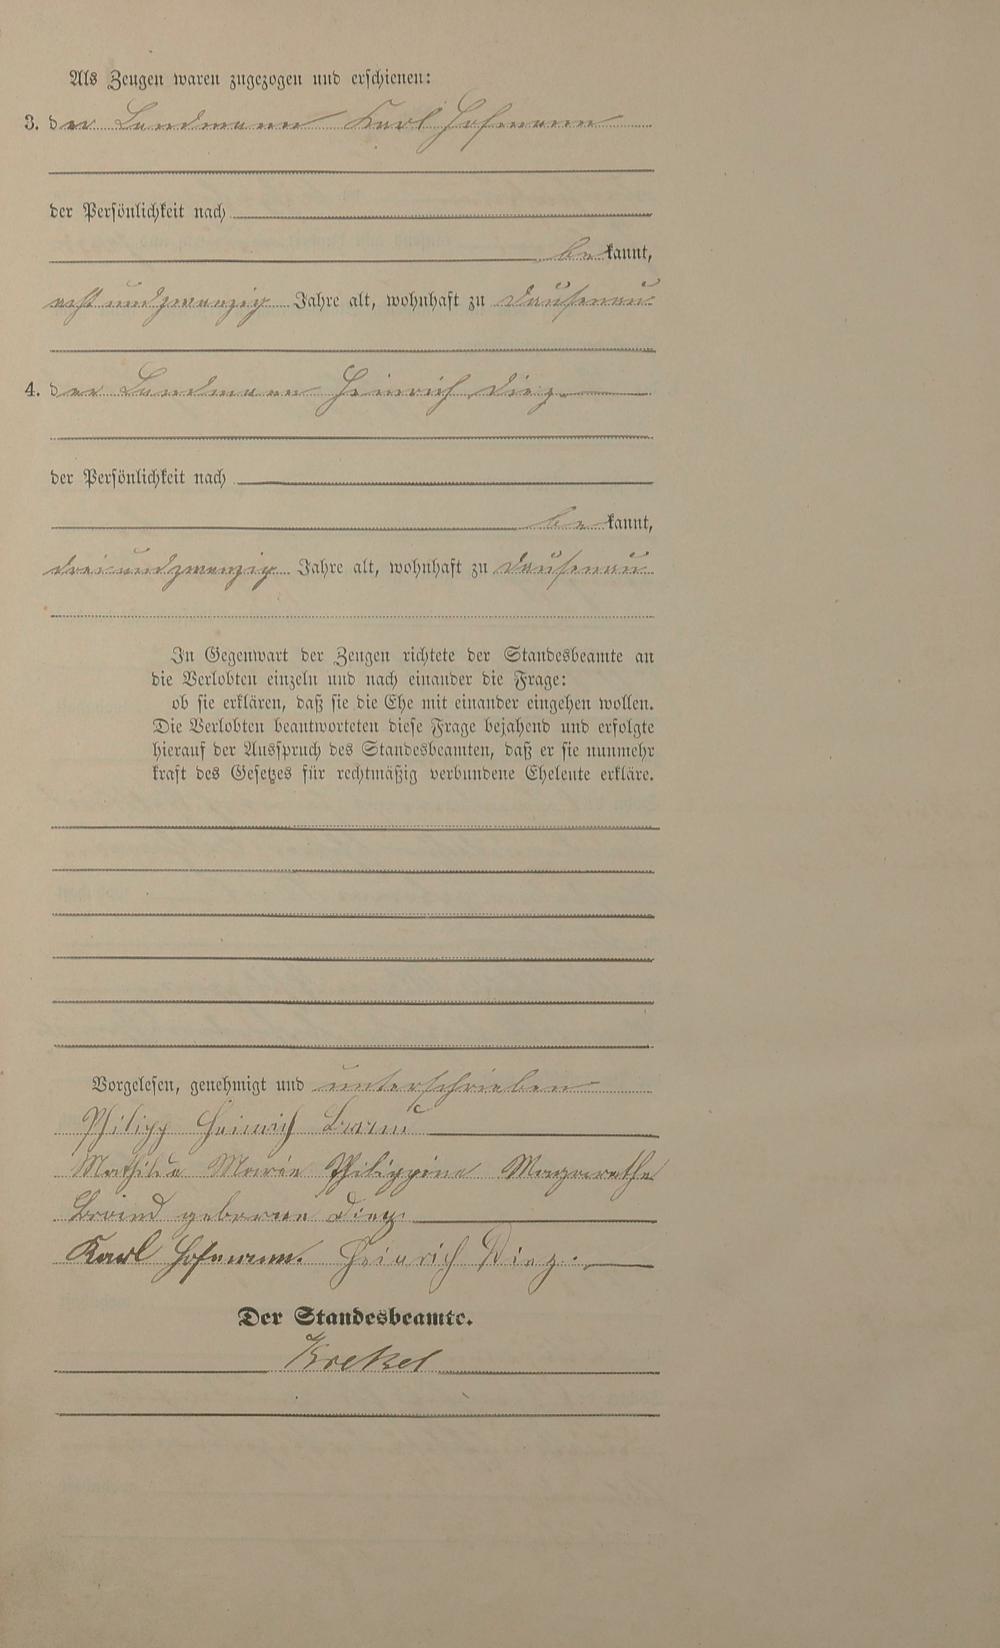 Als Zeugen waren zugezogen und erschienen:
3. der Landmann Karl Hofmann
der Persönlichkeit nach
bekannt,
acht und zwanzig Jahre alt, wohnhaft zu Dausenau
4. der Landmann Heinrich Diez
der Persönlichkeit nach
bekannt,
drei und zwanzig Jahre alt, wohnhaft zu Dausenau
In Gegenwart der Zeugen richtete der Standesbeamte an
die Verlobten einzeln und nach einander die Frage:
ob sie erklären, daß sie die Ehe mit einander eingehen wollen.
Die Verlobten beantworteten diese Frage bejahend und erfolgte
hierauf der Ausspruch des Standesbeamten, daß er sie nunmehr
kraft des Gesetzes für rechtmäßig verbundene Eheleute erkläre.
Vorgelesen, genehmigt und unterschrieben
Philipp Heinrich
Mathilde Marie Philippine Magarethe
geborene Diez.
Karl Hofmann. Heinrich Diez.
Der Standesbeamte.
Krekel